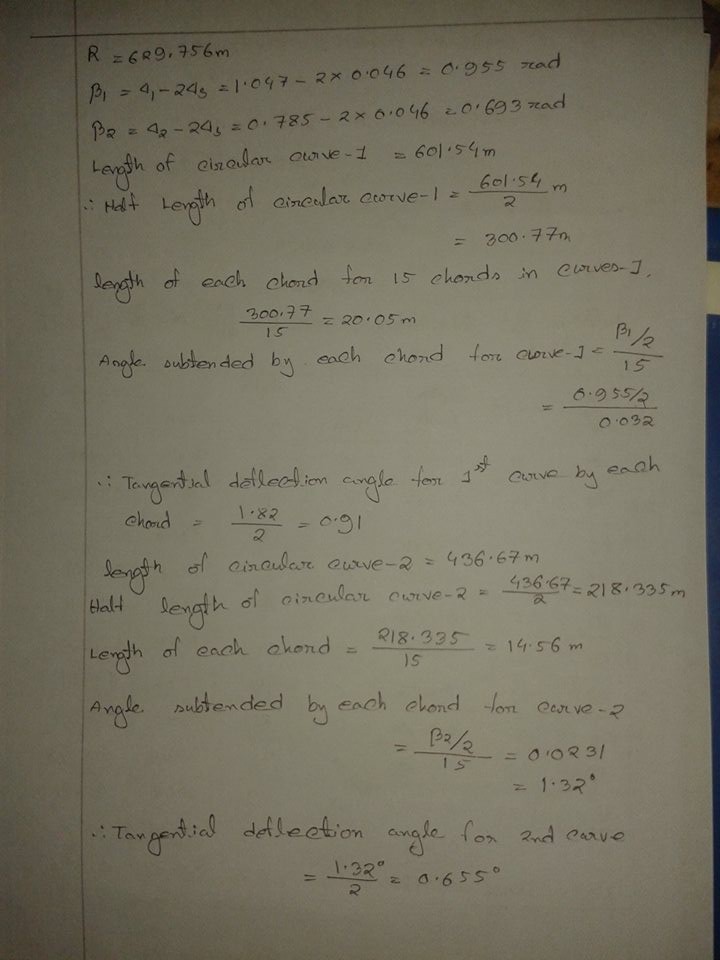 R = 629.756m
β1 = Δ1 - 2Δs = 1.047 - 2 x 0.046 = 0.955 rad
β2 = Δ2 - 2Δs = 0.785 - 2 x 0.046 = 0.693 rad
Length of circular curve-1 = 601.54 m
∴ Half Length of circular curve-1 = 601.54/2 m
= 300.77m
length of each chord for 15 chords in curves-1.
300.77/15 = 20.05 m
Angle subtended by each chord for curve-1 = β1/2/15
= 0.955/2/0.032
∴ Tangential deflection angle for 1st curve by each
chord = 1.82/2 = 0.91
length of circular curve-2 = 436.67 m
Half length of circular curve-2 = 436.67/2 = 218.335 m
Length of each chord = 218.335/15 = 14.56 m
Angle subtended by each chord for curve-2
= β2/2/15 = 0.0231
= 1.32°
∴ Tangential deflection angle for 2nd curve
= 1.32°/2 = 0.655°